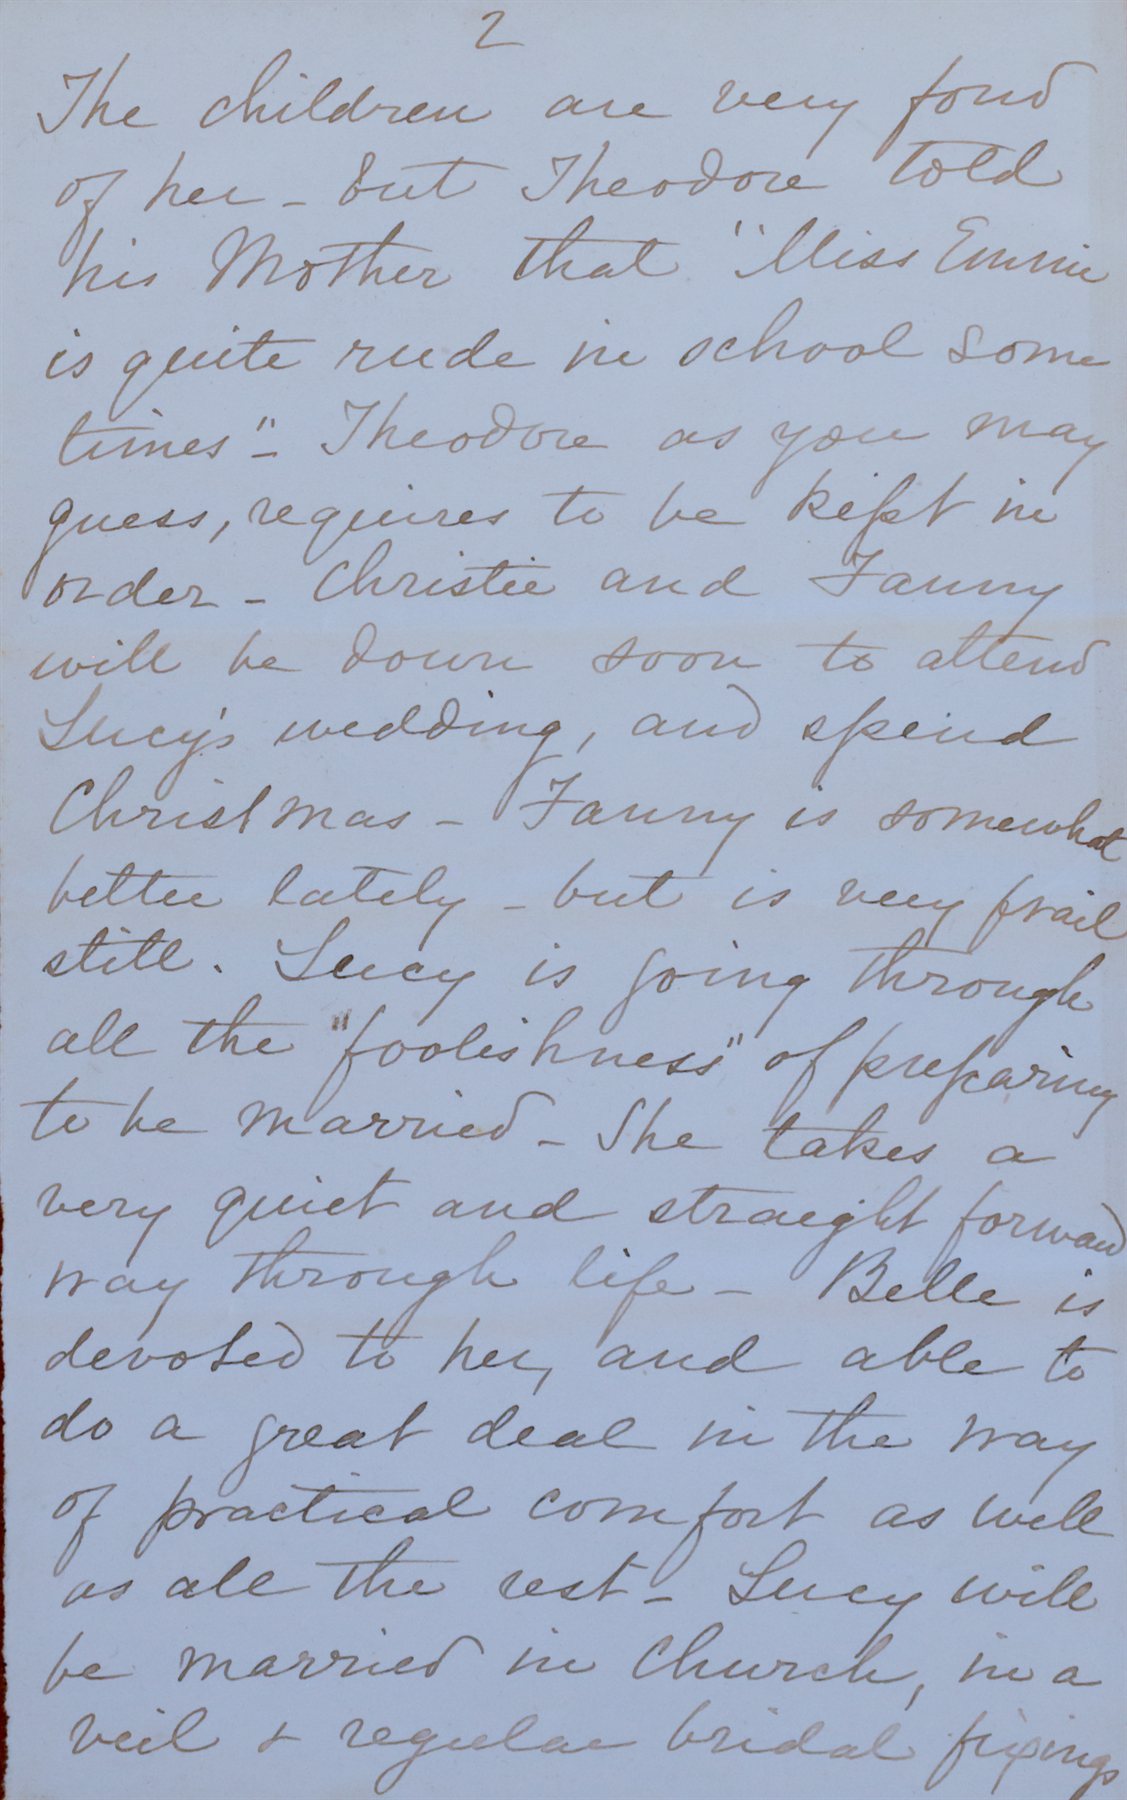 2
The children are very fond
of her - but Theodore told
his Mother that "Miss Emmie
is quite rude in school some
times" - Theodore as you may
guess, requires to be kept in
order - Christie and Fanny
will be down soon to attend
Lucy's wedding, and spend
Christmas - Fanny is somewhat
better lately - but is very frail
still. Lucy is going through
all the "foolishness" of preparing
to be married - She takes a
very quiet and straight forward
way through life - Belle is
devoted to her, and able to
do a great deal in the way
of practical comfort as well
as all the rest - Lucy will
be married in Church, in a
veil & regular bridal fixings